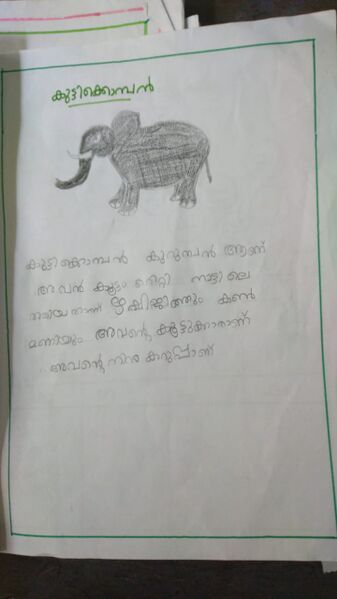 കുട്ടിക്കൊമ്പൻ
കുട്ടിക്കൊമ്പൻ കുറുമ്പൻ ആണ്
അവൻ കൂട്ടം തെറ്റി നാട്ടിലെ
കൺ
മണിയും അവന്റെ കൂട്ടുകാരാണ്
അവന്റെ നിറം കറുപ്പാണ്